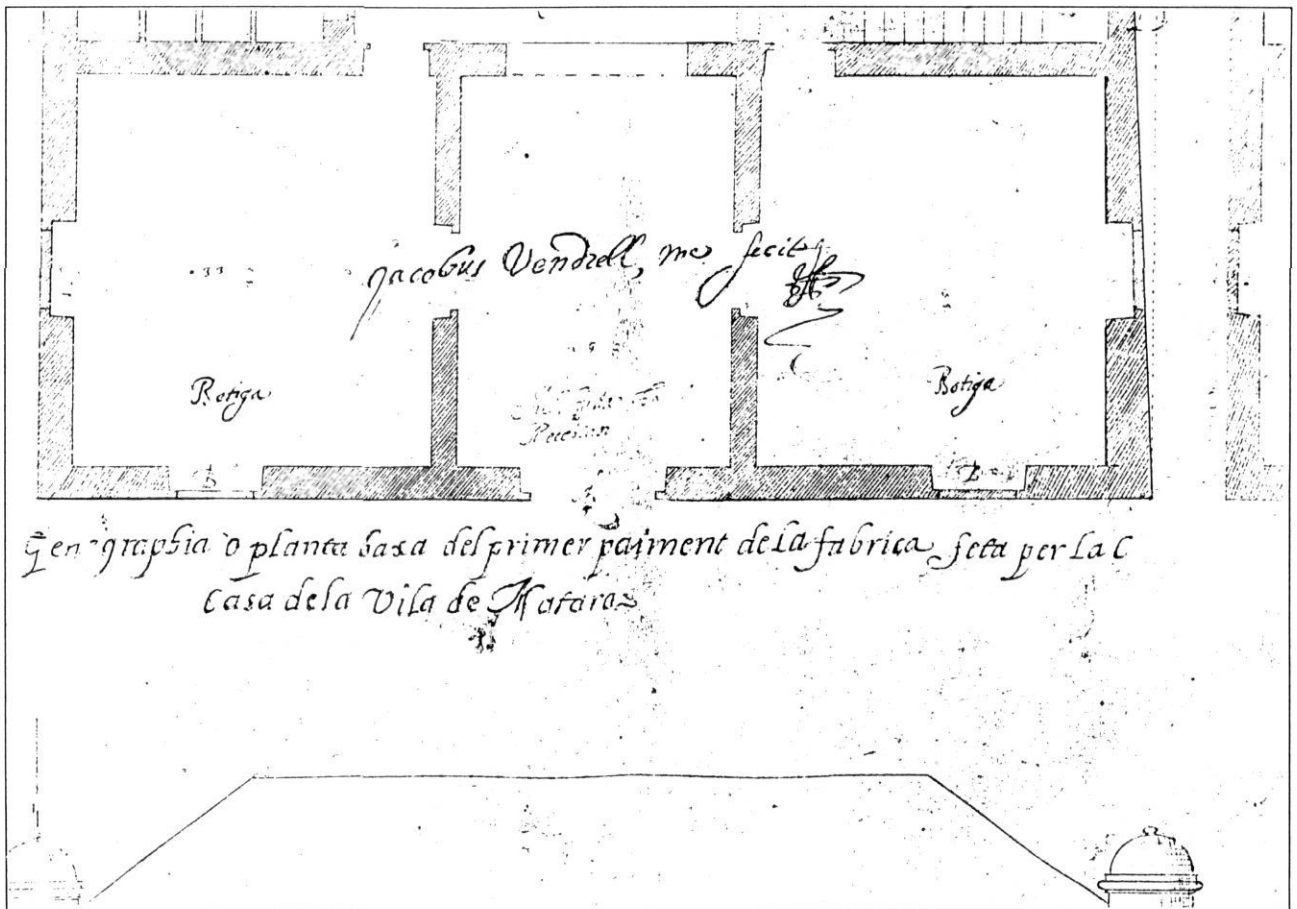 Jacobus Vendrell, me fecit
Botiga
Botiga
planta baxa del primer paiment de la fabrica feta per La C
Casa dela Vila de Mataro